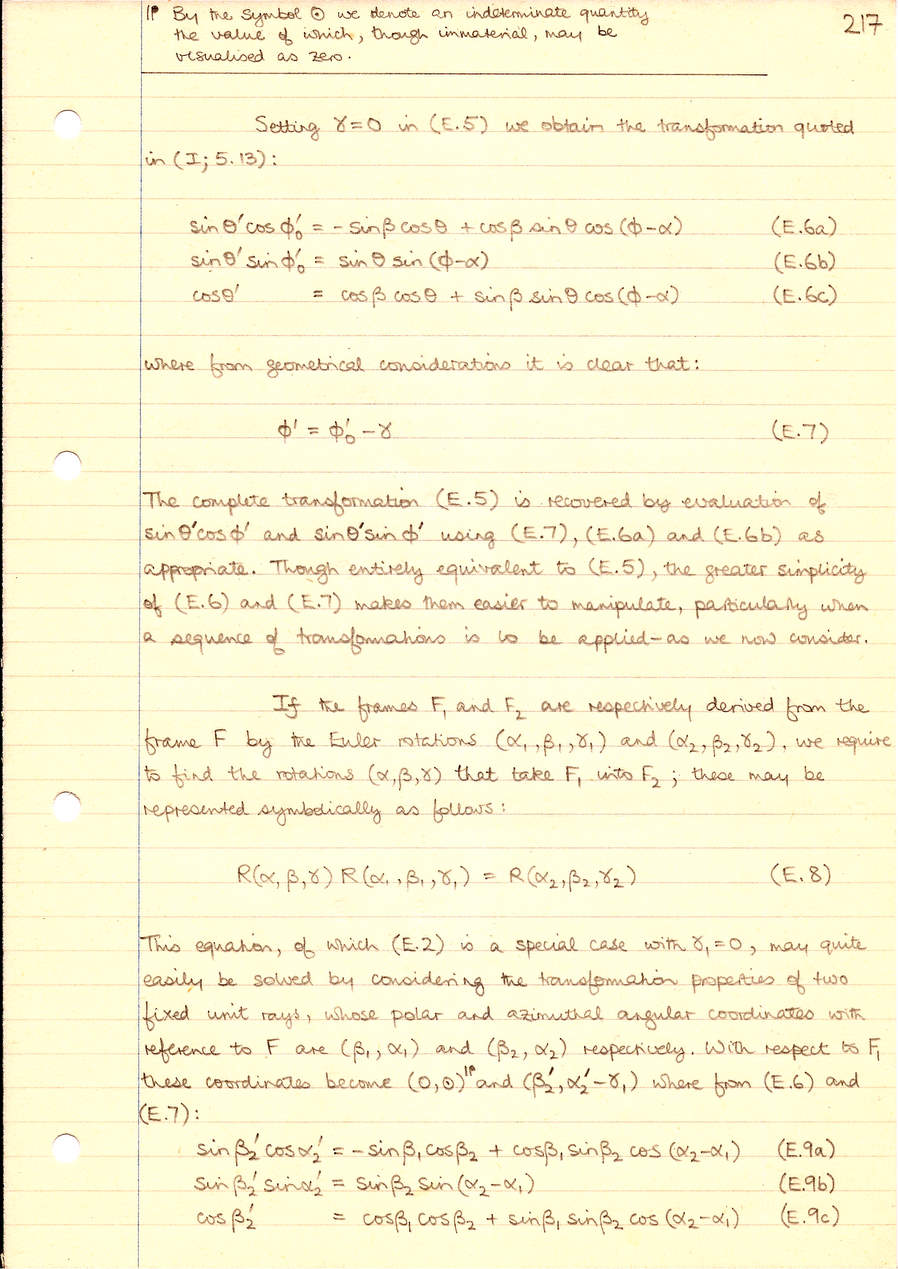 1P By the symbol ⊙ we denote an indeterminate quantity
the value of which, though immaterial, may be
visualised as zero.
217
Setting γ=0 in (E.5) we obtain the transformation quoted
in (I; 5.13):
sinθ′cosφ′₀ = -sinβ cosθ + cosβ sinθ cos(φ-α) (E.6a)
sinθ′sinφ′₀ = sinθ sin(φ-α) (E.6b)
cosθ′ = cosβ cosθ + sinβ sinθ cos(φ-α) (E.6c)
where from geometrical considerations it is clear that:
φ′ = φ′₀ - γ (E.7)
The complete transformation (E.5) is recovered by evaluation of
sinθ′cosφ′ and sinθ′sinφ′ using (E.7), (E.6a) and (E.6b) as
appropriate. Though entirely equivalent to (E.5), the greater simplicity
of (E.6) and (E.7) makes them easier to manipulate, particularly when
a sequence of transformations is to be applied - as we now consider.
If the frames F₁ and F₂ are respectively derived from the
frame F by the Euler rotations (α₁,β₁,γ₁) and (α₂,β₂,γ₂), we require
to find the rotations (α,β,γ) that take F₁ into F₂; these may be
represented symbolically as follows:
R(α,β,γ) R(α₁,β₁,γ₁) = R(α₂,β₂,γ₂) (E.8)
This equation, of which (E.2) is a special case with γ₁=0, may quite
easily be solved by considering the transformation properties of two
fixed unit rays, whose polar and azimuthal angular coordinates with
reference to F are (β₁,α₁) and (β₂,α₂) respectively. With respect to F₁
these coordinates become (0,⊙)1P and (β₂′,α₂′-γ₁) where from (E.6) and
(E.7):
sinβ₂′cosα₂′ = -sinβ₁cosβ₂ + cosβ₁sinβ₂ cos(α₂-α₁) (E.9a)
sinβ₂′sinα₂′ = sinβ₂ sin(α₂-α₁) (E.9b)
cosβ₂′ = cosβ₁cosβ₂ + sinβ₁ sinβ₂ cos(α₂-α₁) (E.9c)